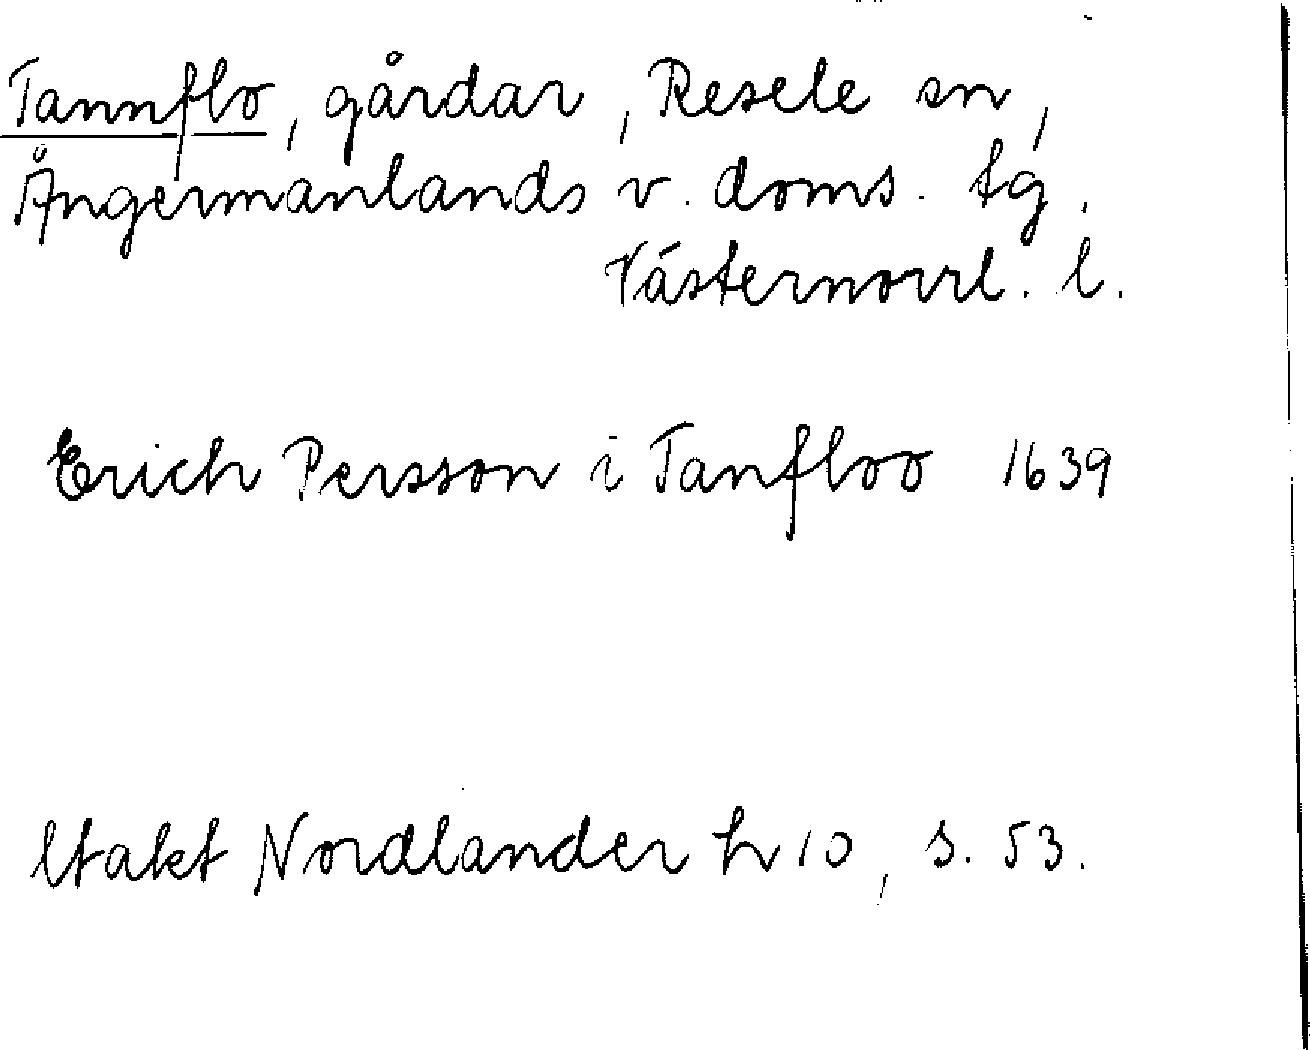 Tannflo, gårdar, Resele sn,
Ångermanlands v. doms. tg.
Västernorrl. l.
Erich Persson i Tanfloo 1639
Utakt Nordlander h 10, s. 53.